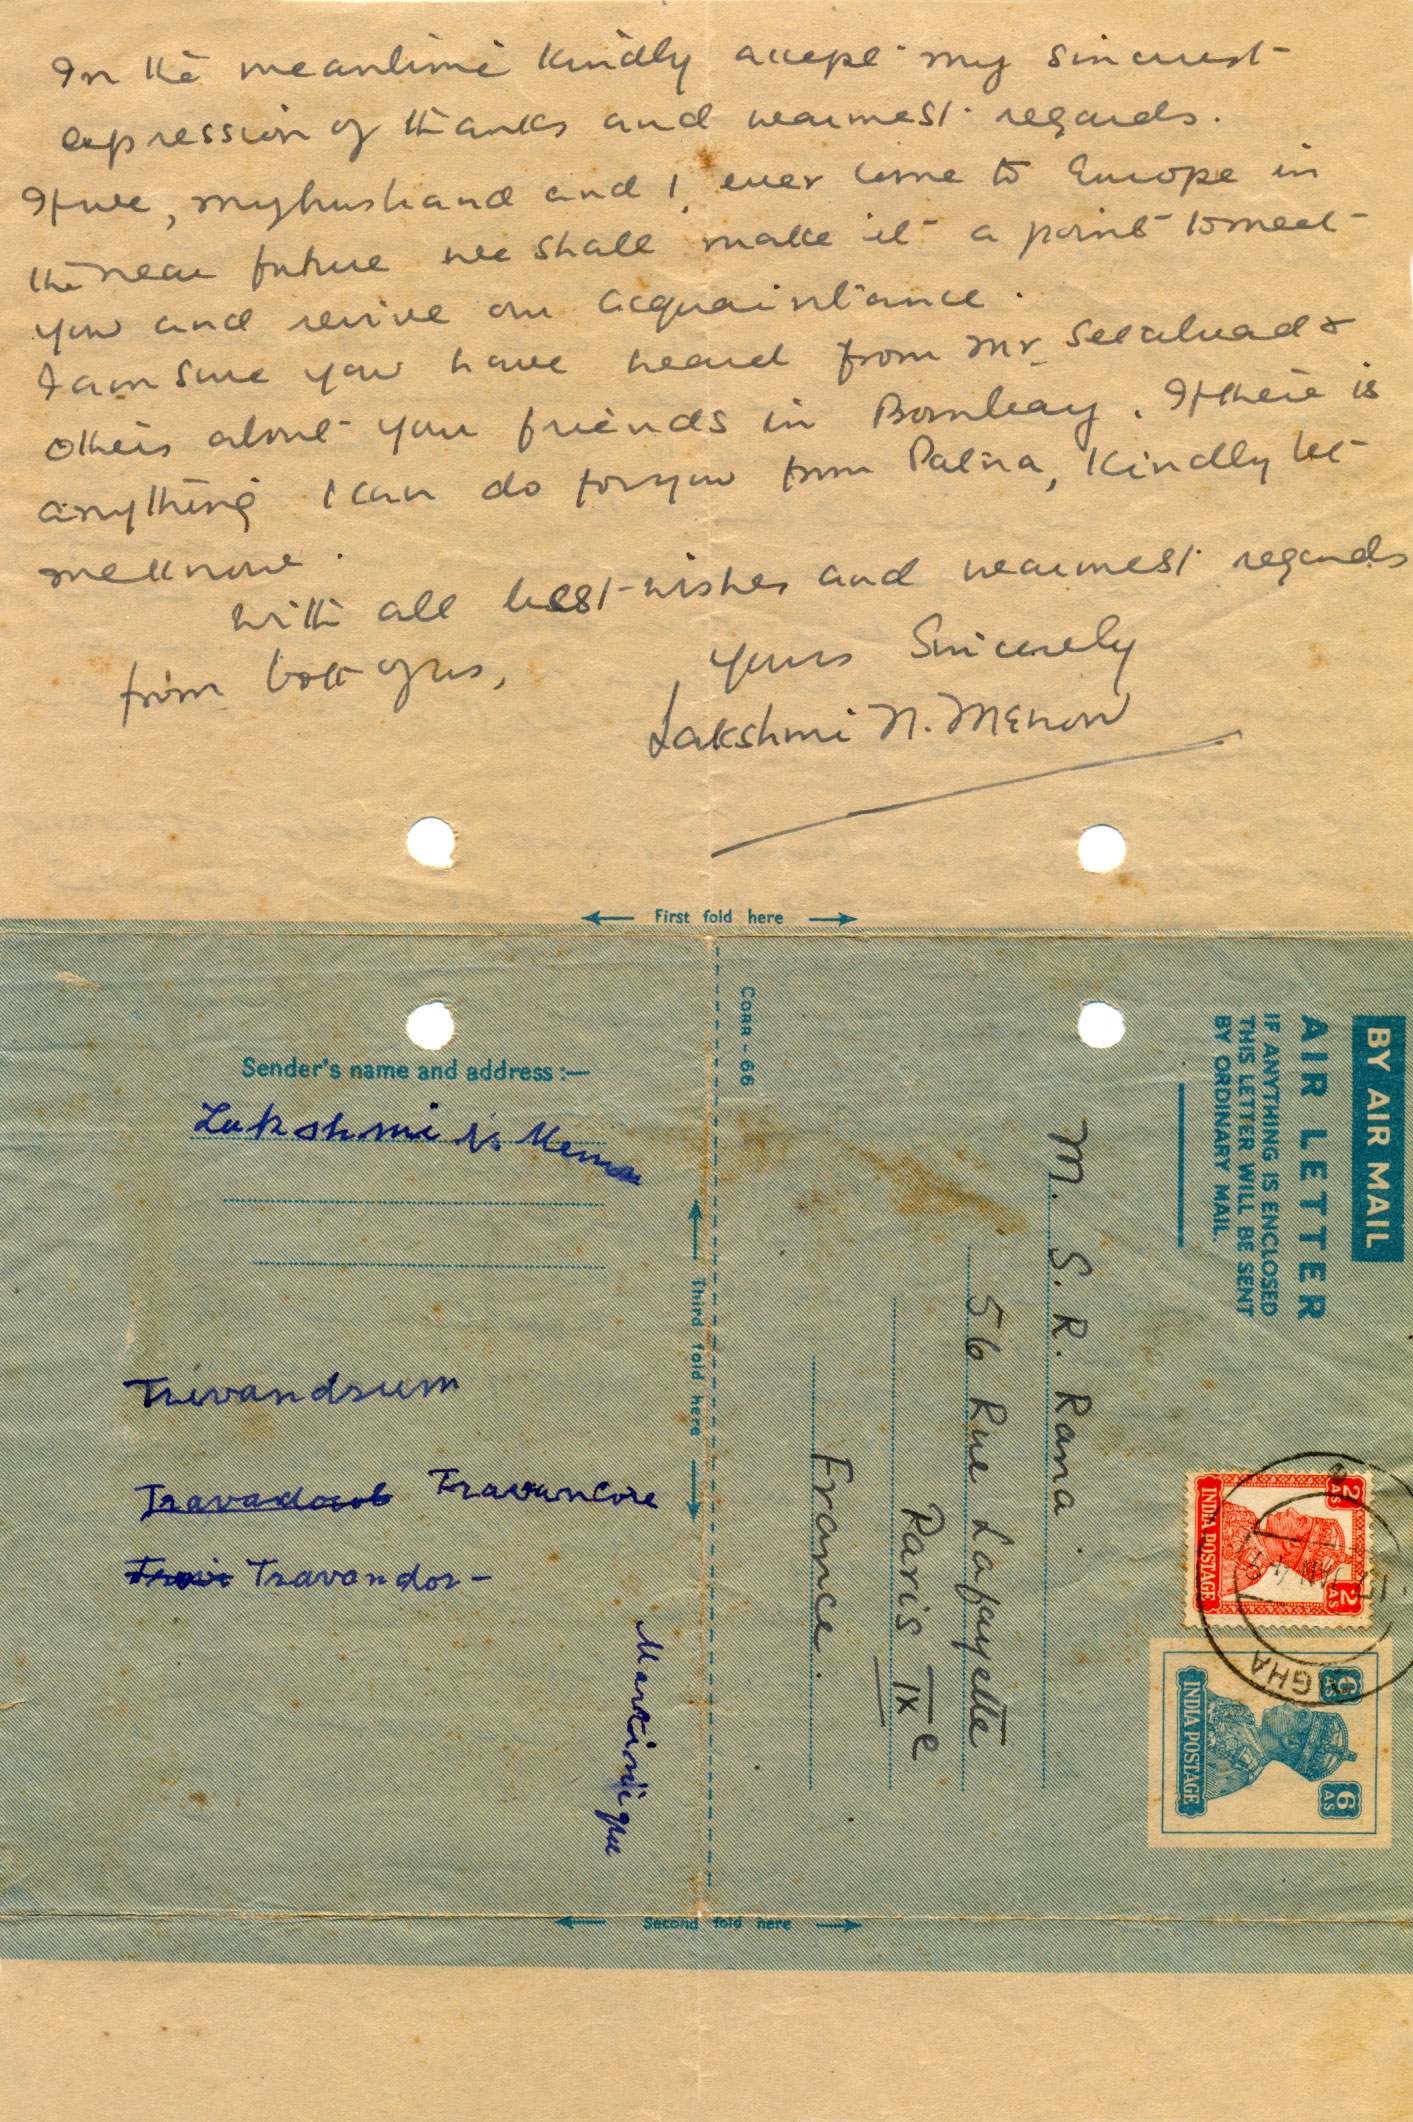 In the meantime kindly accept my sincerest
expression of thanks and warmest regards.
If we, my husband and I, ever come to Europe in
the near future we shall make it a point to meet
you and revive our acquaintance.
I am sure you have heard from Mr. Setalvad &
others about your friends in Bombay. If there is
anything I can do for you from Patna, kindly let
me know.
With all best wishes and warmest regards
from both of us,
Yours Sincerely
Lakshmi N. Menon
First fold here
Sender's name and address :—
Lakshmi N Menon
Trivandrum
Travancore
Travandor-
Martinique
Third fold here
CORR - 66
BY AIR MAIL
AIR LETTER
IF ANYTHING IS ENCLOSED
THIS LETTER WILL BE SENT
BY ORDINARY MAIL.
M. S. R. Rana.
56 Rue Lafayette
Paris IXe
France.
2 AS 2 AS
INDIA POSTAGE
JAN
GHA
6 AS 6 AS
INDIA POSTAGE
Second fold here